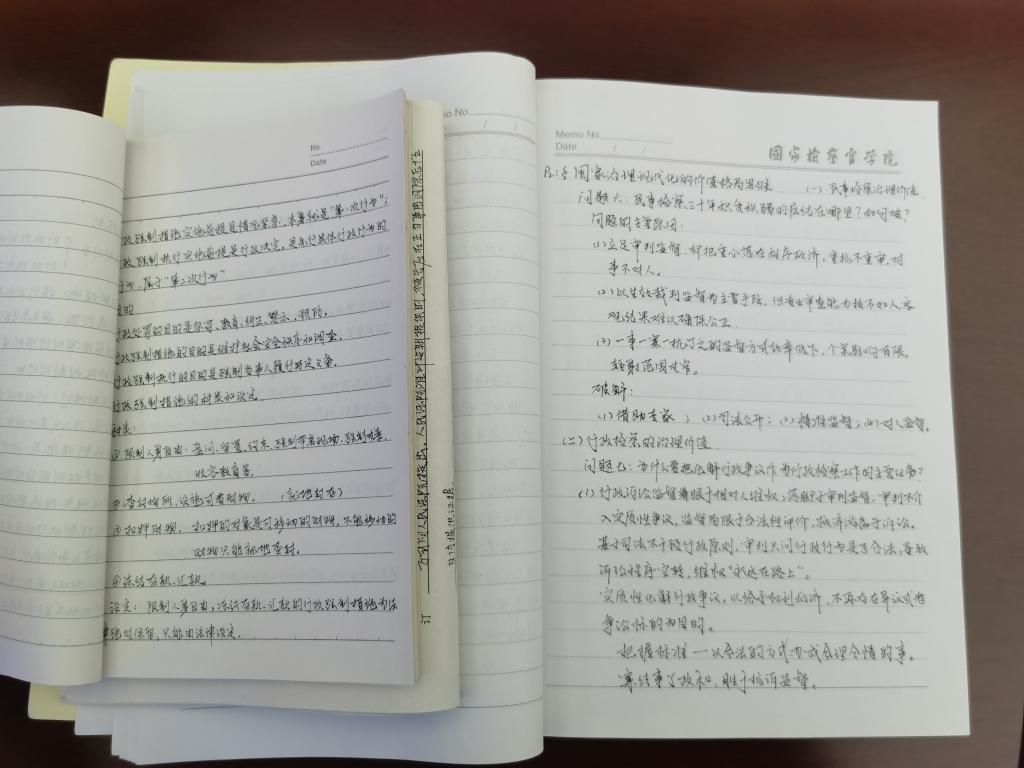 No.
Date
政强制措施实施前提是情况紧急，本身就是“第一次行为”；
政强制执行实施前提是行政决定，是先行具体行政行为的
行为，属于“第二次行为”
目的
行政处罚的目的是惩罚、教育、纠正、警示、预防。
行政强制措施的目的是维护社会安全秩序和调查。
行政强制执行的目的是强制当事人履行法定义务。
行政强制措施的种类和设定。
种类：
①限制人身自由：盘问、留置、约束、强制带离现场、强制戒毒、
收容教育等
②查封场所、设施或者财物。（就地封存）
③扣押财物。扣押的对象是可移动的财物，不能移动的
财物只能就地查封。
④冻结存款、汇款。
设定：限制人身自由，冻结存款、汇款的行政强制措施为法
律绝对保留，只能由法律设定。
订
Memo No.
Date / /
国家检察官学院
P2:5 国家治理现代化的价值格局 （一）民事检察治理价值
问题六：民事检察三十年积贫积弱的症结在哪里？如何破？
问题的主要原因：
（1）立足审判监督，却把重心落在程序救济，重抗不重审，对
事不对人。
（2）以生效裁判监督为主要手段，但专业审查能力技不如人，客
观结果难以确保公正
（3）一事一案一抗了之的监督方式效率低下，个案影响有限，
辐射范围过窄。
破解：
（1）借助专家；（2）司法公开；（3）精准监督；（4）对人监督。
（二）行政检察的治理价值
问题七：为什么要把化解行政争议作为行政检察工作的主要任务？
（1）行政诉讼监督着眼于相对人维权，落脚于审判监督，审判不介
入实质性争议，监督局限于合法性评价，救济游离于诉讼。
基于司法不干预行政原则，审判只问行政行为是否合法，导致
诉讼程序空转，维权“永远在路上”。
实质性化解行政争议，以给予权利救济，不再存在异议或者
争讼标的为目的。
把握标准—以合法的方式办成合理合情的事。
案结事了政和，胜于抗诉监督。